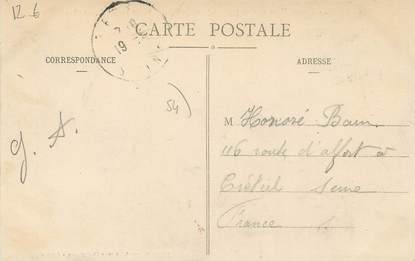 12.6
CARTE POSTALE
CORRESPONDANCE
ADRESSE
54
M Honoré Bain
116 route d'alfort à
Créteil Seine
France
g. A.